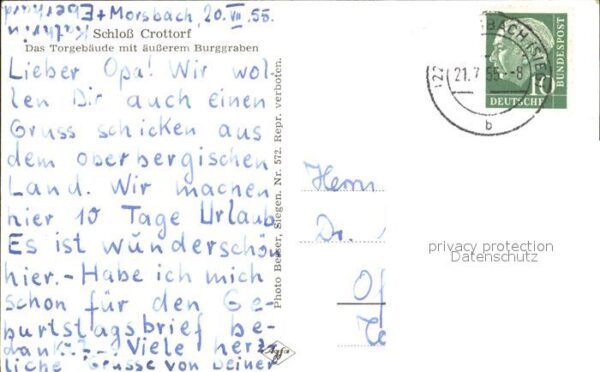 + Morsbach, 20. VII. 55.
Kathrin + Eberhard
Schloß Crottorf
Das Torgebäude mit äußerem Burggraben
Lieber Opa! Wir wol-
len Dir auch einen
Gruss schicken aus
dem oberbergischen
Land. Wir machen
hier 10 Tage Urlaub
Es ist wunderschön
hier. - Habe ich mich
schon für den Ge-
burtstagsbrief be-
dankt? - Viele herz-
liche Grüsse von Deiner
Photo Becker, Siegen. Nr. 572. Repr. verboten.
Agfa
BACH (SIEG
(22
21.7.55.-8
b
10
DEUTSCHE
BUNDESPOST
Herrn
Dr.
privacy protection
Datenschutz